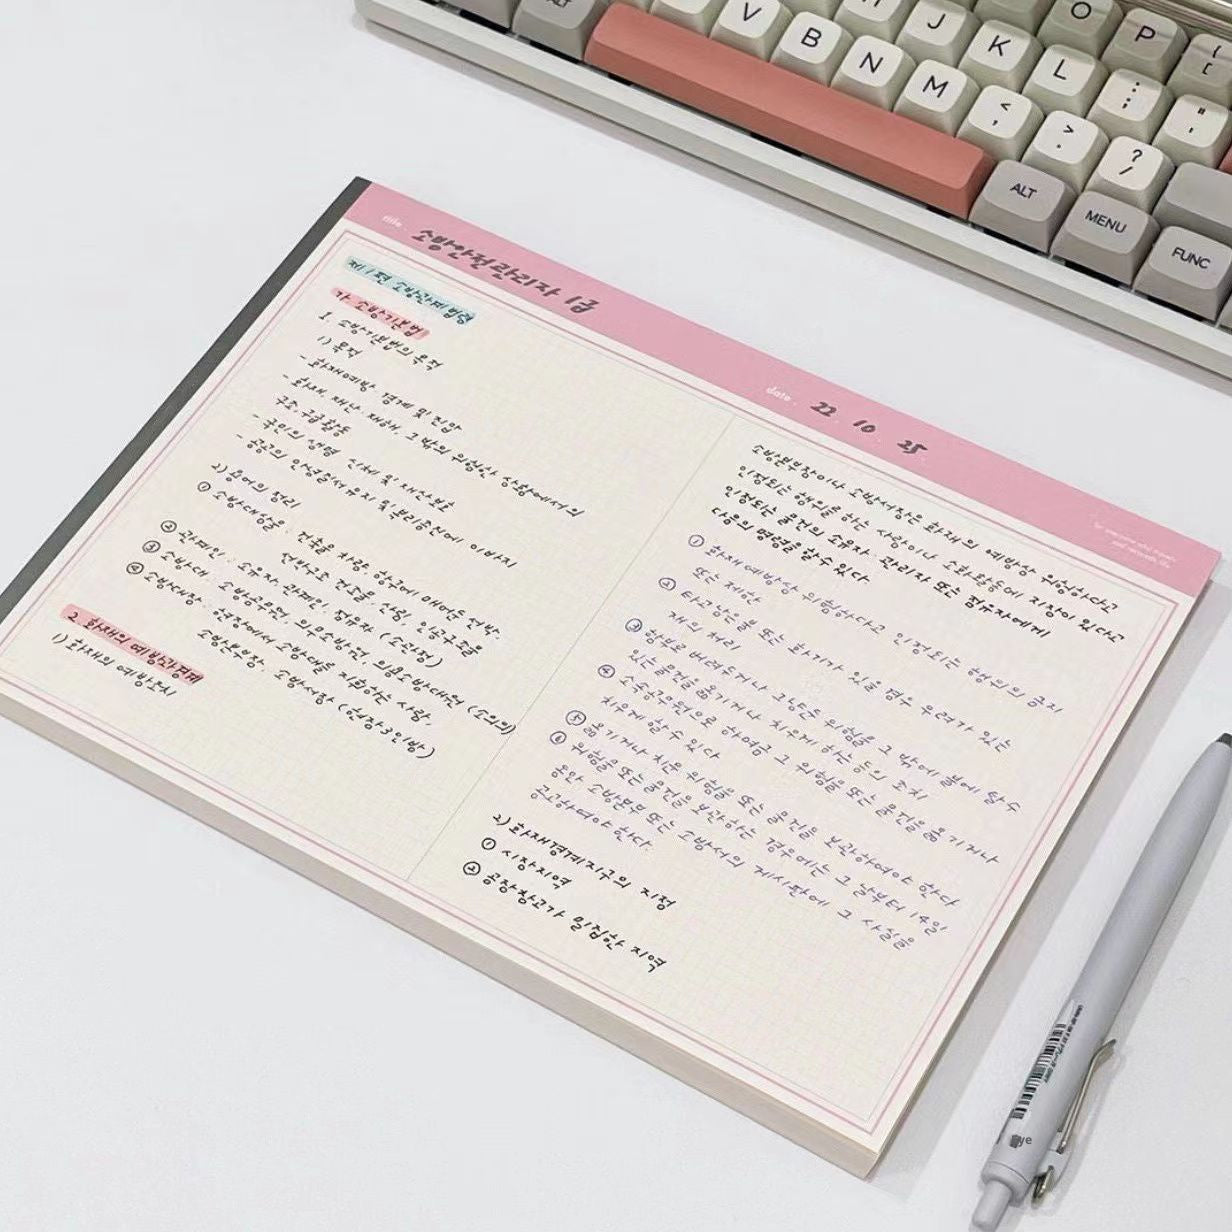 ALT
V
B
N
M
J
K
L
O
P
<
,
>
.
?
/
:
;
"
'
{
[
ALT
MENU
FUNC
title.
소방안전관리자 1급
date.
22. 10. 25
제1편 소방관계법령
가. 소방기본법
1. 소방기본법의 목적
1) 목적
- 화재예방 경계 및 진압
- 화재, 재난, 재해, 그 밖의 위험한 상황에서의
구조·구급활동
- 국민의 생명 신체 및 재산보호
- 공공의 안녕질서유지 및 복리증진에 이바지
2) 용어의 정리
① 소방대상물 : 건축물 차량 항구에 매어둔 선박,
선박건조 구조물, 산림, 인공구조물
② 관계인 : 소유자, 관리인, 점유자 (소관점)
③ 소방대 : 소방공무원, 의무소방원, 의용소방대원 (소의의)
④ 소방대장 : 현장에서 소방대를 지휘하는 사람
소방본부장, 소방서장 (현장3인방)
2. 화재의 예방과 경계
1) 화재의 예방조치
소방본부장이나 소방서장은 화재의 예방상 위험하다고
인정되는 행위를 하는 사람이나 소화활동에 지장이 있다고
인정되는 물건의 소유자·관리자 또는 점유자에게
다음의 명령을 할 수 있다
① 화재예방상 위험하다고 인정되는 행위의 금지
또는 제한
② 타고남은 불 또는 화기가 있을 경우 우려가 있는
재의 처리
③ 함부로 버려두거나 그냥둔 위험물 그 밖에 불에 탈 수
있는 물건을 옮기거나 치우게 하는 등의 조치
④ 소속공무원으로 하여금 그 위험물 또는 물건을 옮기거나
치우게 할 수 있다
⑤ 옮기거나 치운 위험물 또는 물건을 보관하여야 한다
⑥ 위험물 또는 물건을 보관하는 경우에는 그 날부터 14일
동안 소방본부 또는 소방서의 게시판에 그 사실을
공고하여야 한다.
2) 화재경계지구의 지정
① 시장지역
② 공장·창고가 밀집한 지역